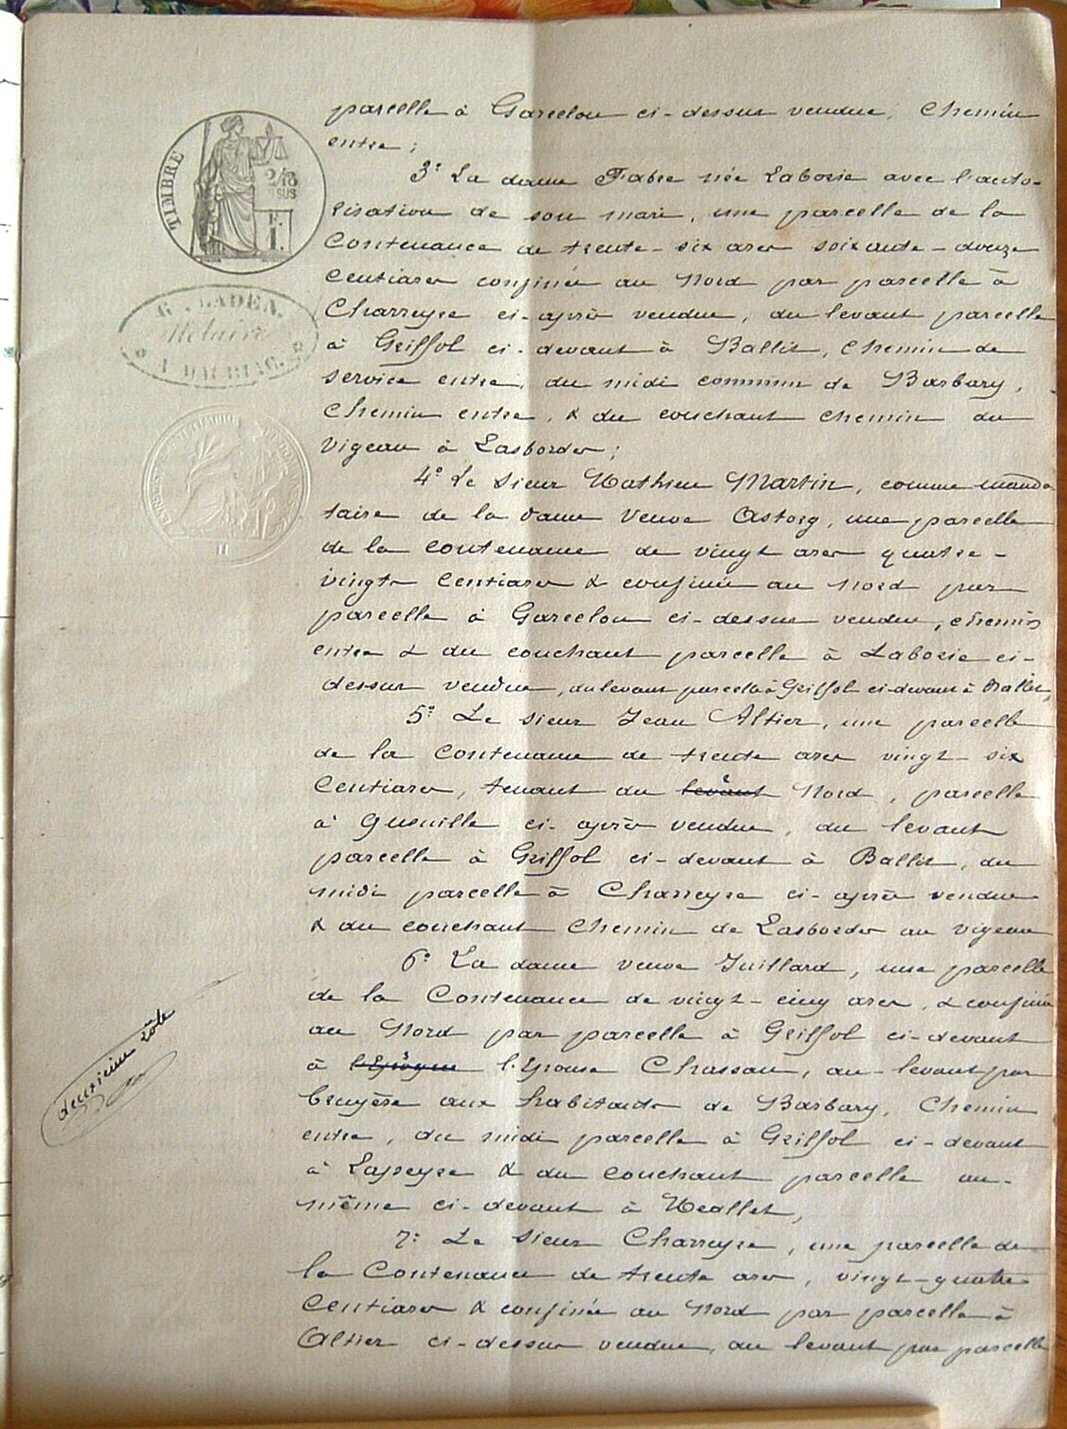 TIMBRE
2/10
SUS
1 F.
Notaire
A MAURIAC.
parcelle à Garcelou ci-dessus vendue, chemin
entre;
3º La dame Fabre née Laborie avec l'auto-
risation de son mari, une parcelle de la
contenance de trente-six ares soixante-douze
centiares confinée au Nord par parcelle à
Charreyre ci-après vendue, au levant parcelle
à Griffol ci-devant à Ballit, chemin de
service entre, du midi commun de Barbary,
chemin entre, & du couchant chemin du
Vigeau à Lasbordes;
4º Le Sieur Mathieu Martin, comme manda-
taire de la dame Veuve Astorg, une parcelle
de la contenance de vingt ares quatre-
vingts centiares & confinée au nord par
parcelle à Garcelou ci-dessus vendue, chemin
entre & du couchant parcelle à Laborie ci-
dessus vendue, au levant parcelle à Griffol ci-devant à Ballit,
5º Le sieur Jean Altier, une parcelle
de la contenance de trente ares vingt-six
centiares, tenant du levant Nord, parcelle
à Guenille ci-après vendue, au levant
parcelle à Griffol ci-devant à Ballit, du
midi parcelle à Charreyre ci-après vendue
& du couchant chemin de Lasbordes au Vigeau
6º La dame veuve Juillard, une parcelle
de la contenance de vingt-cinq ares, & confinée
au Nord par parcelle à Griffol ci-devant
à l'Epouse Chassan, au levant par
bruyère aux habitants de Barbary, chemin
entre, du midi parcelle à Griffol ci-devant
à Lapeyre & du couchant parcelle au
même ci-devant à Meallet,
7º Le Sieur Charreyre, une parcelle de
la contenance de trente ares, vingt-quatre
centiares & confinée au Nord par parcelle à
Altier ci-dessus vendue, au levant par parcelle
deuxième rôle